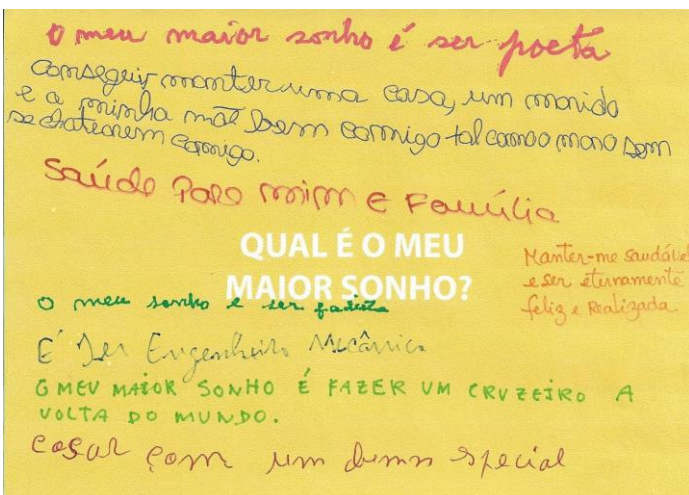 O meu maior sonho é ser poeta
Conseguir manter uma casa, um marido
e a minha mãe bem comigo tal como moro sem
se chatearem comigo.
Saúde para mim e Família
QUAL É O MEU
MAIOR SONHO?
Manter-me saudável
e ser eternamente
feliz e Realizada
O meu sonho é ser fadista
É Ser Engenheiro Mecânico
O MEU MAIOR SONHO É FAZER UM CRUZEIRO A
VOLTA DO MUNDO.
Casar com um special